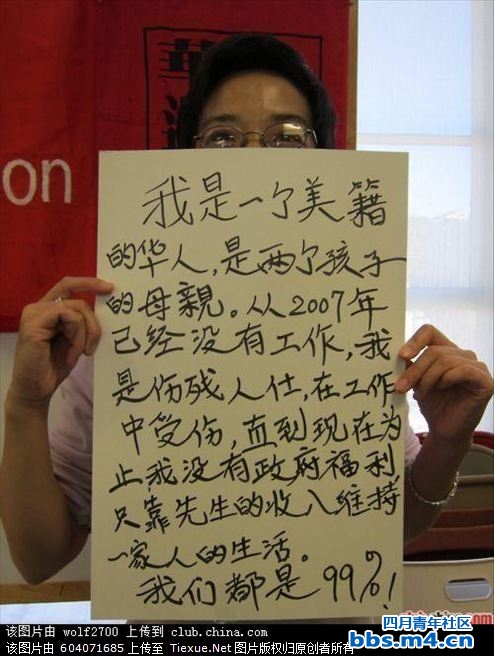 華
on
我是一个美籍
的华人，是两个孩子
的母親。从2007年
已经没有工作，我
是伤残人仕，在工作
中受伤，直到现在为
止我没有政府福利
只靠先生的收入维持
一家人的生活。
我们都是99%！
该图片由 wolf2700 上传到 club.china.com
该图片由 604071685 上传至 Tiexue.Net 图片版权归原创者所有
四月青年社区
bbs.m4.cn